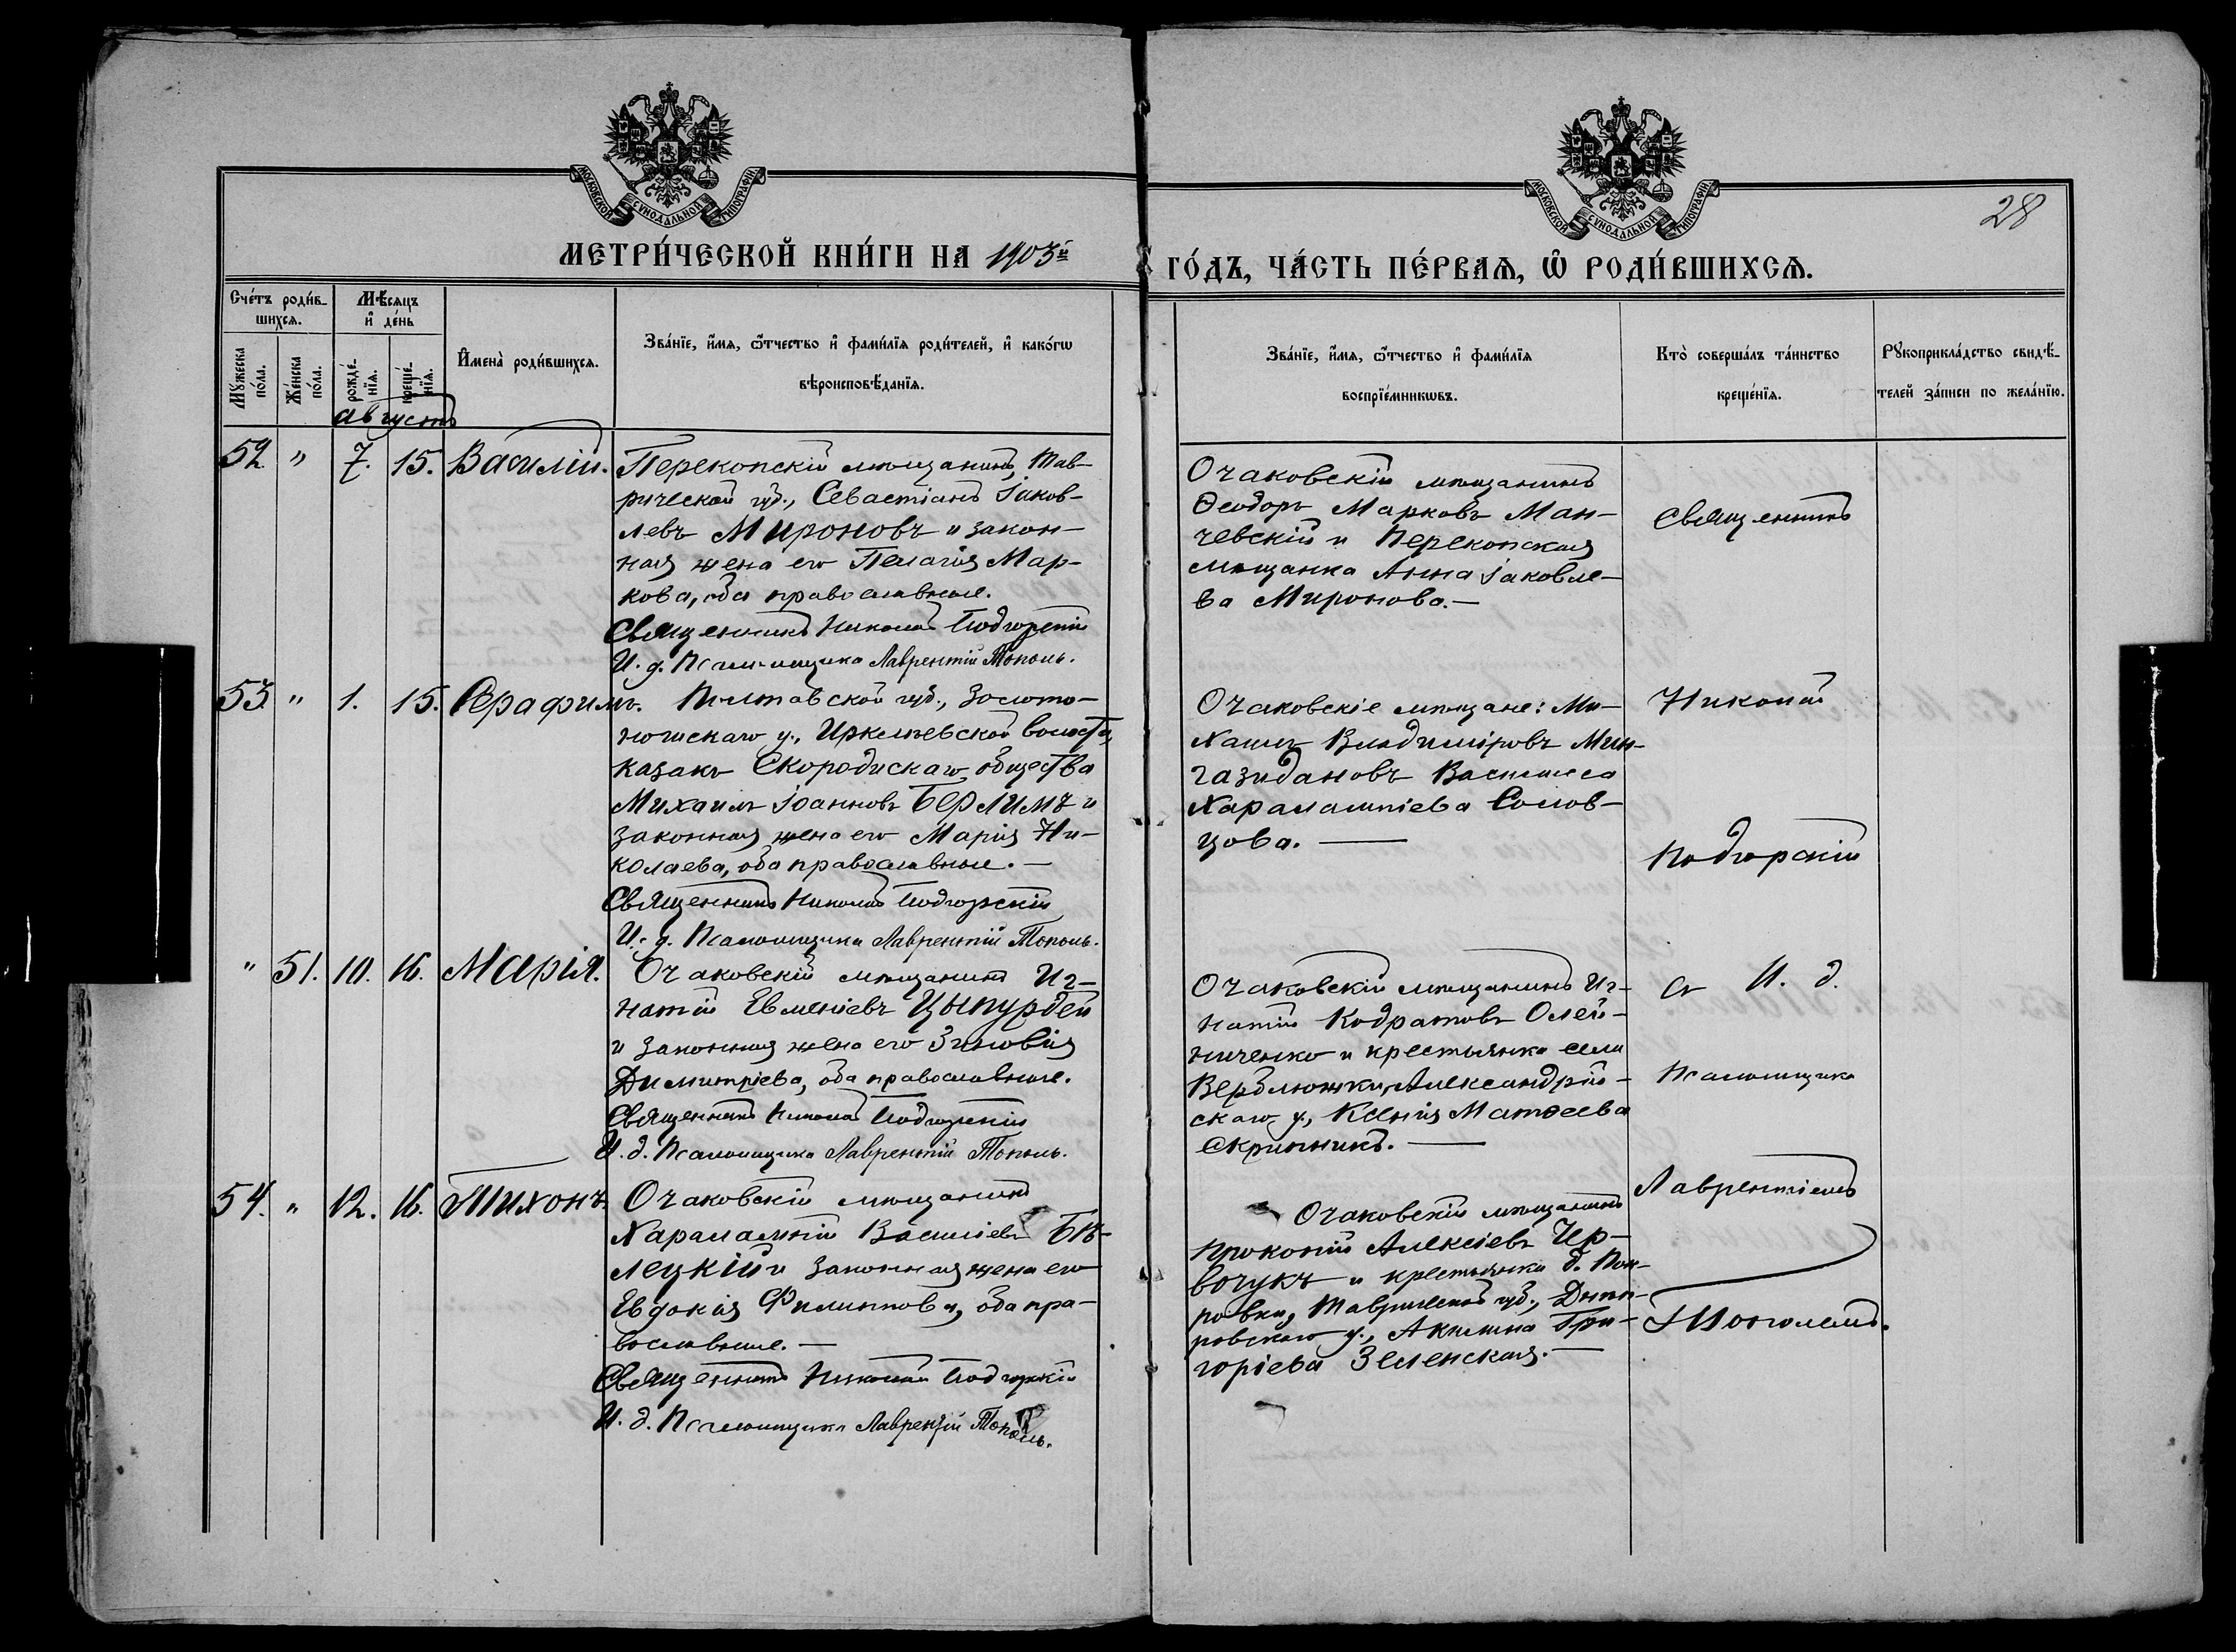 МОСКОВСКОЙ СѴНОДАЛЬНОЙ ТИПОГРАФІИ
МОСКОВСКОЙ СѴНОДАЛЬНОЙ ТИПОГРАФІИ
28
МЕТРИ́ЧЕСКОЙ КНИ́ГИ НА 1903й
ГО́ДЪ, ЧА́СТЬ ПЕ́РВАѦ, Ѡ҆ РОДИ́ВШИХСѦ.
Сче́тъ роди́в-
шихсѧ.
Мꙋжеска по́ла.
Же́нска по́ла.
Мѣ́сяцъ
и҆ де́нь
рожде́-
нїѧ.
креще́-
нїѧ.
И҆мена̀ роди́вшихсѧ.
Зва́нїе, и҆́мѧ, ѻ҆́тчество и҆ фами́лїѧ роди́телей, и҆ како́гѡ
вѣроисповѣ́данїѧ.
Зва́нїе, и҆́мѧ, ѻ҆́тчество и҆ фами́лїѧ
воспрїе́мникѡвъ.
Кто̀ соверша́лъ та́инство
креще́нїѧ.
Рꙋкоприкла́дство свидѣ́-
телей за́писи по жела́нїю.
августъ
52. " 7. 15. Василій.
Перекопскій мѣщанинъ, Тав-
рической губ., Севастіанъ Іаков-
левъ Мироновъ и закон-
ная жена его Пелагія Мар-
кова, оба православные.
Священникъ Николай Подгорскій
И. д. Псаломщика Лаврентій Тополь.
Очаковскій мѣщанинъ
Ѳеодоръ Марковъ Ман-
чевскій и Перекопская
мѣщанка Анна Іаковле-
ва Миронова.—
Священникъ
53. " 1. 15. Серафимъ.
Полтавской губ., Золото-
ношскаго у., Иркліевской волости,
казакъ Скородискаго общества
Михаилъ Іоанновъ Берлимъ и
законная жена его Марія Ни-
колаева, оба православные.—
Священникъ Николай Подгорскій
И. д. Псаломщика Лаврентій Тополь.
Очаковскіе мѣщане: Ми-
хаилъ Владиміровъ Мин-
газидановъ Василиса
Харалампіева Солов-
цова.—
Николай
Подгорскій
" 51. 10. 16. Марія.
Очаковскій мѣщанинъ Иг-
натій Евменіевъ Цыпурдей
и законная жена его Зиновія
Димитріева, оба православные.
Священникъ Николай Подгорскій
И. д. Псаломщика Лаврентій Тополь.
Очаковскій мѣщанинъ Иг-
натій Кодратовъ Олей-
ниченко и крестьянка села
Верблюжки, Александрій-
скаго у., Ксенія Матѳеева
Скрипникъ.—
съ И. д.
Псаломщика
54. " 12. 16. Тихонъ.
Очаковскій мѣщанинъ
Харалампій Василіевъ Бѣ-
лецкій и законная жена его
Евдокія Филиппова, оба пра-
вославные.—
Священникъ Николай Подгорскій
И. д. Псаломщика Лаврентій Тополь.
Очаковскій мѣщанинъ
Прокопій Алексіевъ Чер-
вочукъ и крестьянка д.
Таврической губ., Днѣп-
ровскаго у., Акилина Гри-
горіева Зеленская.—
Лаврентіемъ
Тополемъ.